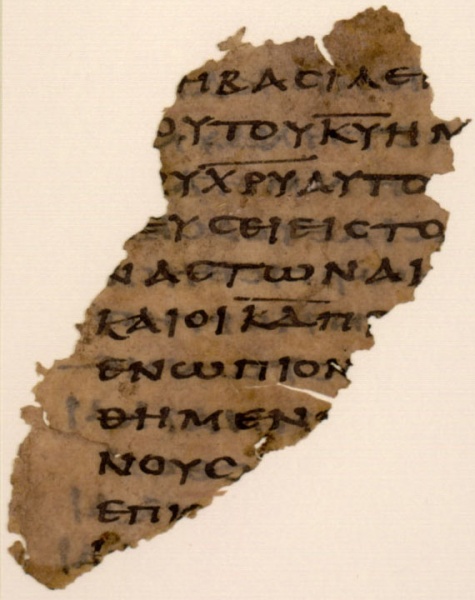 ΗΒΑϹΙΛΕΙ
ΟΥΤΟΥΚ̅Υ̅ΗΜ
ΟΥΧ̅Ρ̅Υ̅ΑΥΤΟ
ΕΥϹΕΙΕΙϹΤΟ
ΝΑϹΤΩΝΑΙ
ΚΑΙΟΙΚ̅Δ̅ΠΡ
ΕΝΩΠΙΟΝ
ΘΗΜΕΝΟ
ΝΟΥϹ
ΕΠΙ